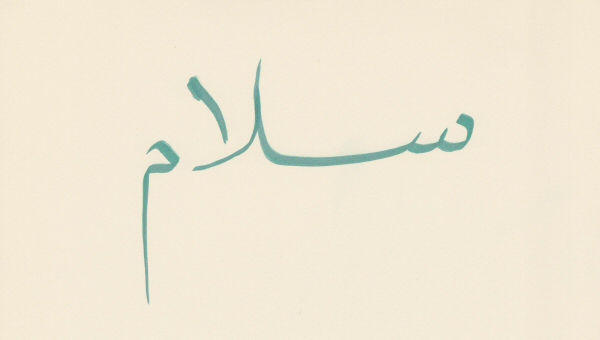 سلام